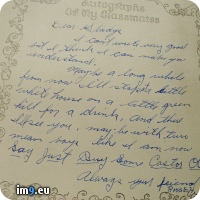 Autographs
Of My Classmates
Dear Gladys
I can't write very good
but I think I can make you
understand.
Maybe a long while
from now I'll stop at a little
white house on a little green
hill for a drink, and then
I'll see you, maybe with two
mean boys like I am now
Say Just Bring Some Castor O
Always your friend
im9.eu